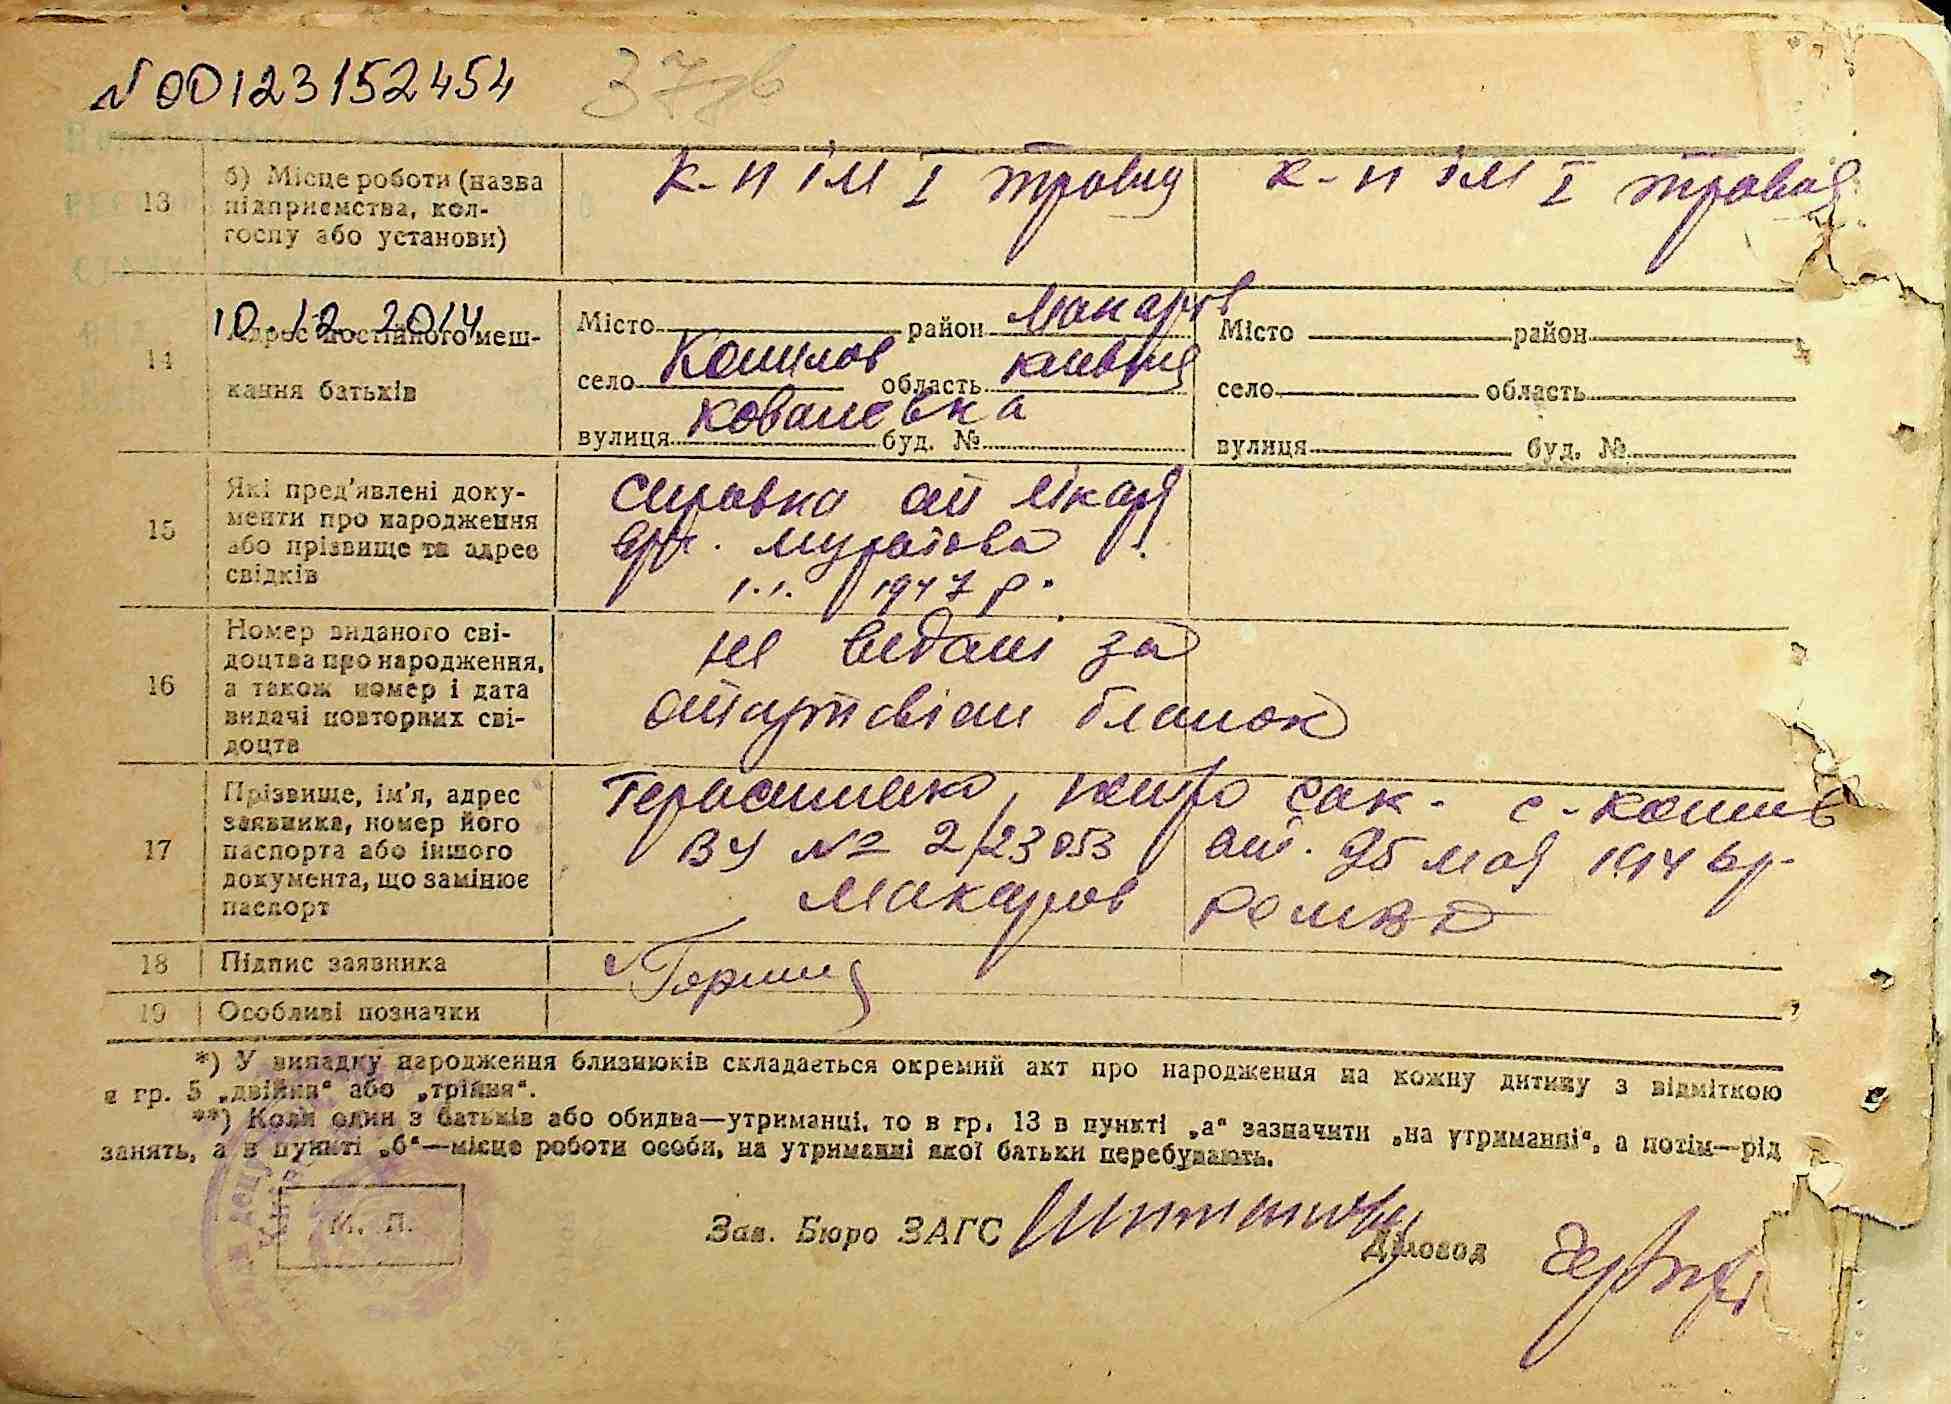 N 00123152454 37зв
13 б) Місце роботи (назва підприємства, колгоспу або установи) к-п ім I травня к-п ім I травня
10.12.2014
14 Адрес постійного мешкання батьків
Місто район Макаров Місто район
село Копилов область київська село область
вулиця Ковалевка буд. № вулиця буд. №
15 Які пред'явлені документи про народження або прізвище та адрес свідків
справка от лікаря
1.1. 1947 р.
16 Номер виданого свідоцтва про народження, а також номер і дата видачі повторних свідоцтв
не видані за
бланок
17 Прізвище, ім'я, адрес заявника, номер його паспорта або іншого документа, що замінює паспорт
Герасименко, Петро с-
ВУ № 2/23053 от. 25 мая
Макаров
18 Підпис заявника
19 Особливі позначки
*) У випадку народження близнюків складається окремий акт про народження на кожну дитину з відміткою
в гр. 5 „двійня“ або „трійня“.
**) Коли один з батьків або обидва—утриманці, то в гр. 13 в пункті „а“ зазначити „на утриманні“, а потім—рід
занять, а в пункті „б“—місце роботи особи, на утриманні якої батьки перебувають.
М. П.
Зав. Бюро ЗАГС Діловод